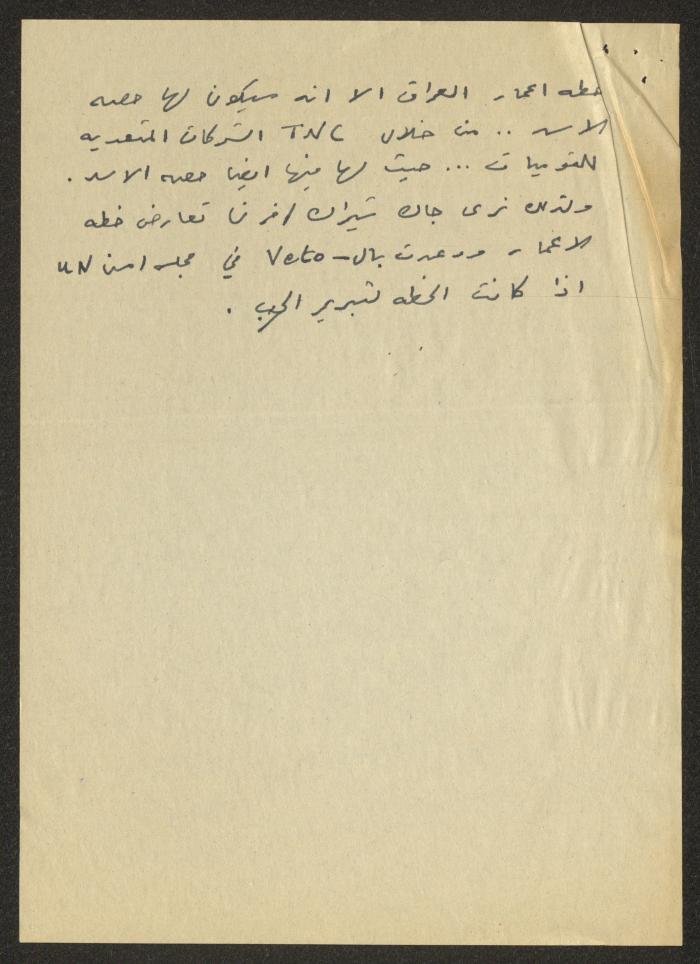 خطه اعمار العراق الا انه سيكون لها حصه
الاسد .. من خلال TNC الشركات المتعديه
للقوميات ... حيث لها فيها ايضا حصه الاسد .
ولذلك نرى جاك شيراك / فرنسا تعارض خطه
الاعمار ووعدت بال - Veto في مجلس امن UN
اذا كانت الخطه لتبرير الحرب .